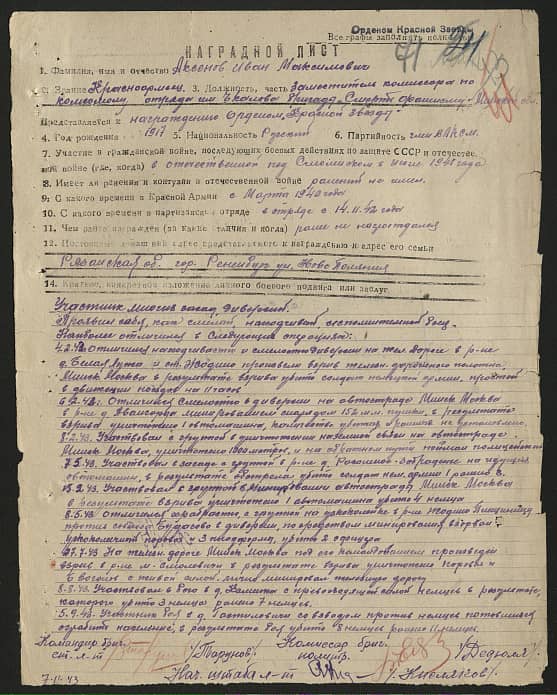 Орденом Красной Звезды
Все графы заполнять полностью
НАГРАДНОЙ ЛИСТ
1. Фамилия, имя и отчество Аксенов Иван Максимович
2. Звание Красноармеец 3. Должность, часть Заместитель комиссара по
комсомолу, отряда им Чкалова бригада „Смерть фашизму" Минской обл.
Представляется к награждению Орденом „Красной Звезды"
4. Год рождения 1917 5. Национальность Русский 6. Партийность член ВЛКСМ.
7. Участие в гражданской войне, последующих боевых действиях по защите СССР и отечестве
ной войне (где, когда) в отечественной под Смоленском в июле 1941 года
8. Имеет ли ранения и контузии в отечественной войне ранений не имел.
9. С какого времени в Красной Армии с Марта 1940 года
10. С какого времени в партизанском отряде в отряде с 14.11.42 года
11. Чем ранее награжден (за какие отличия и когда) ранее не награждался
12. Постоянный домашний адрес представляемого к награждению и адрес его семьи
Рязанская об. гор. Раненбург ул. Ново Поляная
14. Краткое, конкретное изложение личного боевого подвига или заслуг
Участник многих засад, диверсий.
Проявил себя, как смелый, находчивый, исполнительный боец.
Наиболее отличился в следующих операциях:
Отличился находчивостью и смелостью в диверсии на жел. дороге в р-не
д. Белая Лужа и ст. Жодино произведен взрыв железнодорожного полотна
Минск Москва в результате взрыва убито солдат немецкой армии,
в движении поездов на 11 часов
Отличился смелостью в диверсии на автостраде Минск Москва
в р-не д. минированием снарядом 152 м.м пушки, в результате
взрыва уничтожена 1 автомашина, количество убитых фашистов не установлено.
8.2.43. Участвовал с группой в уничтожении наземной связи на автостраде
Минск Москва, уничтожено 1000 метров, и на обратном пути
7.5.43. Участвовал в засаде с группой в р-не д.
автомашины, в результате обстрела убито солдат нем. армии 1 ранено 2.
Участвовал с группой в минировании автострады Минск Москва
в результате взрыва уничтожена 1 автомашина убито 4 немца
8.5.43 Отличился храбростью с группой на узкоколейке в р-не Жодино
против совхоза Будагово в диверсии, посредством минирования взорван
узкоколейный паровоз и 3 платформы, убито 2 офицера
27.7.43 На желез. дороге Минск Москва под его командованием произведен
взрыв в р-не м. Смолевичи в результате взрыва уничтожен паровоз и
6 вагонов с живой силой. лично минировал железную дорогу
8.8.43. Участвовал в бою в д. с превосходящей силой немцев в результате
которого убито 3 немца ранено 7 немцев.
5.9.43. Участник боя в д. со взводом против немцев пытавшихся
ограбить население, в результате боя убито 8 немцев ранено 11 немцев
Командир бриг. /Тарунов/ Комиссар бриг. /Дедюля/
ст. л-т
Нач. штаба л-т